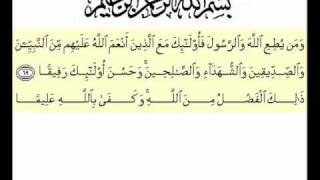 بسم الله الرحمن الرحيم
وَمَن يُطِعِ اللَّهَ وَالرَّسُولَ فَأُولَـٰئِكَ مَعَ الَّذِينَ أَنْعَمَ اللَّهُ عَلَيْهِم مِّنَ النَّبِيِّـۧنَ
وَالصِّدِّيقِينَ وَالشُّهَدَاءِ وَالصَّـٰلِحِينَ ۚ وَحَسُنَ أُولَـٰئِكَ رَفِيقًا ٦٩
ذَٰلِكَ الْفَضْلُ مِنَ اللَّهِ ۚ وَكَفَىٰ بِاللَّهِ عَلِيمًا